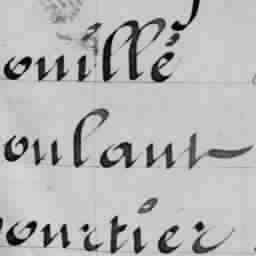 ouillé
oulant
ourtier